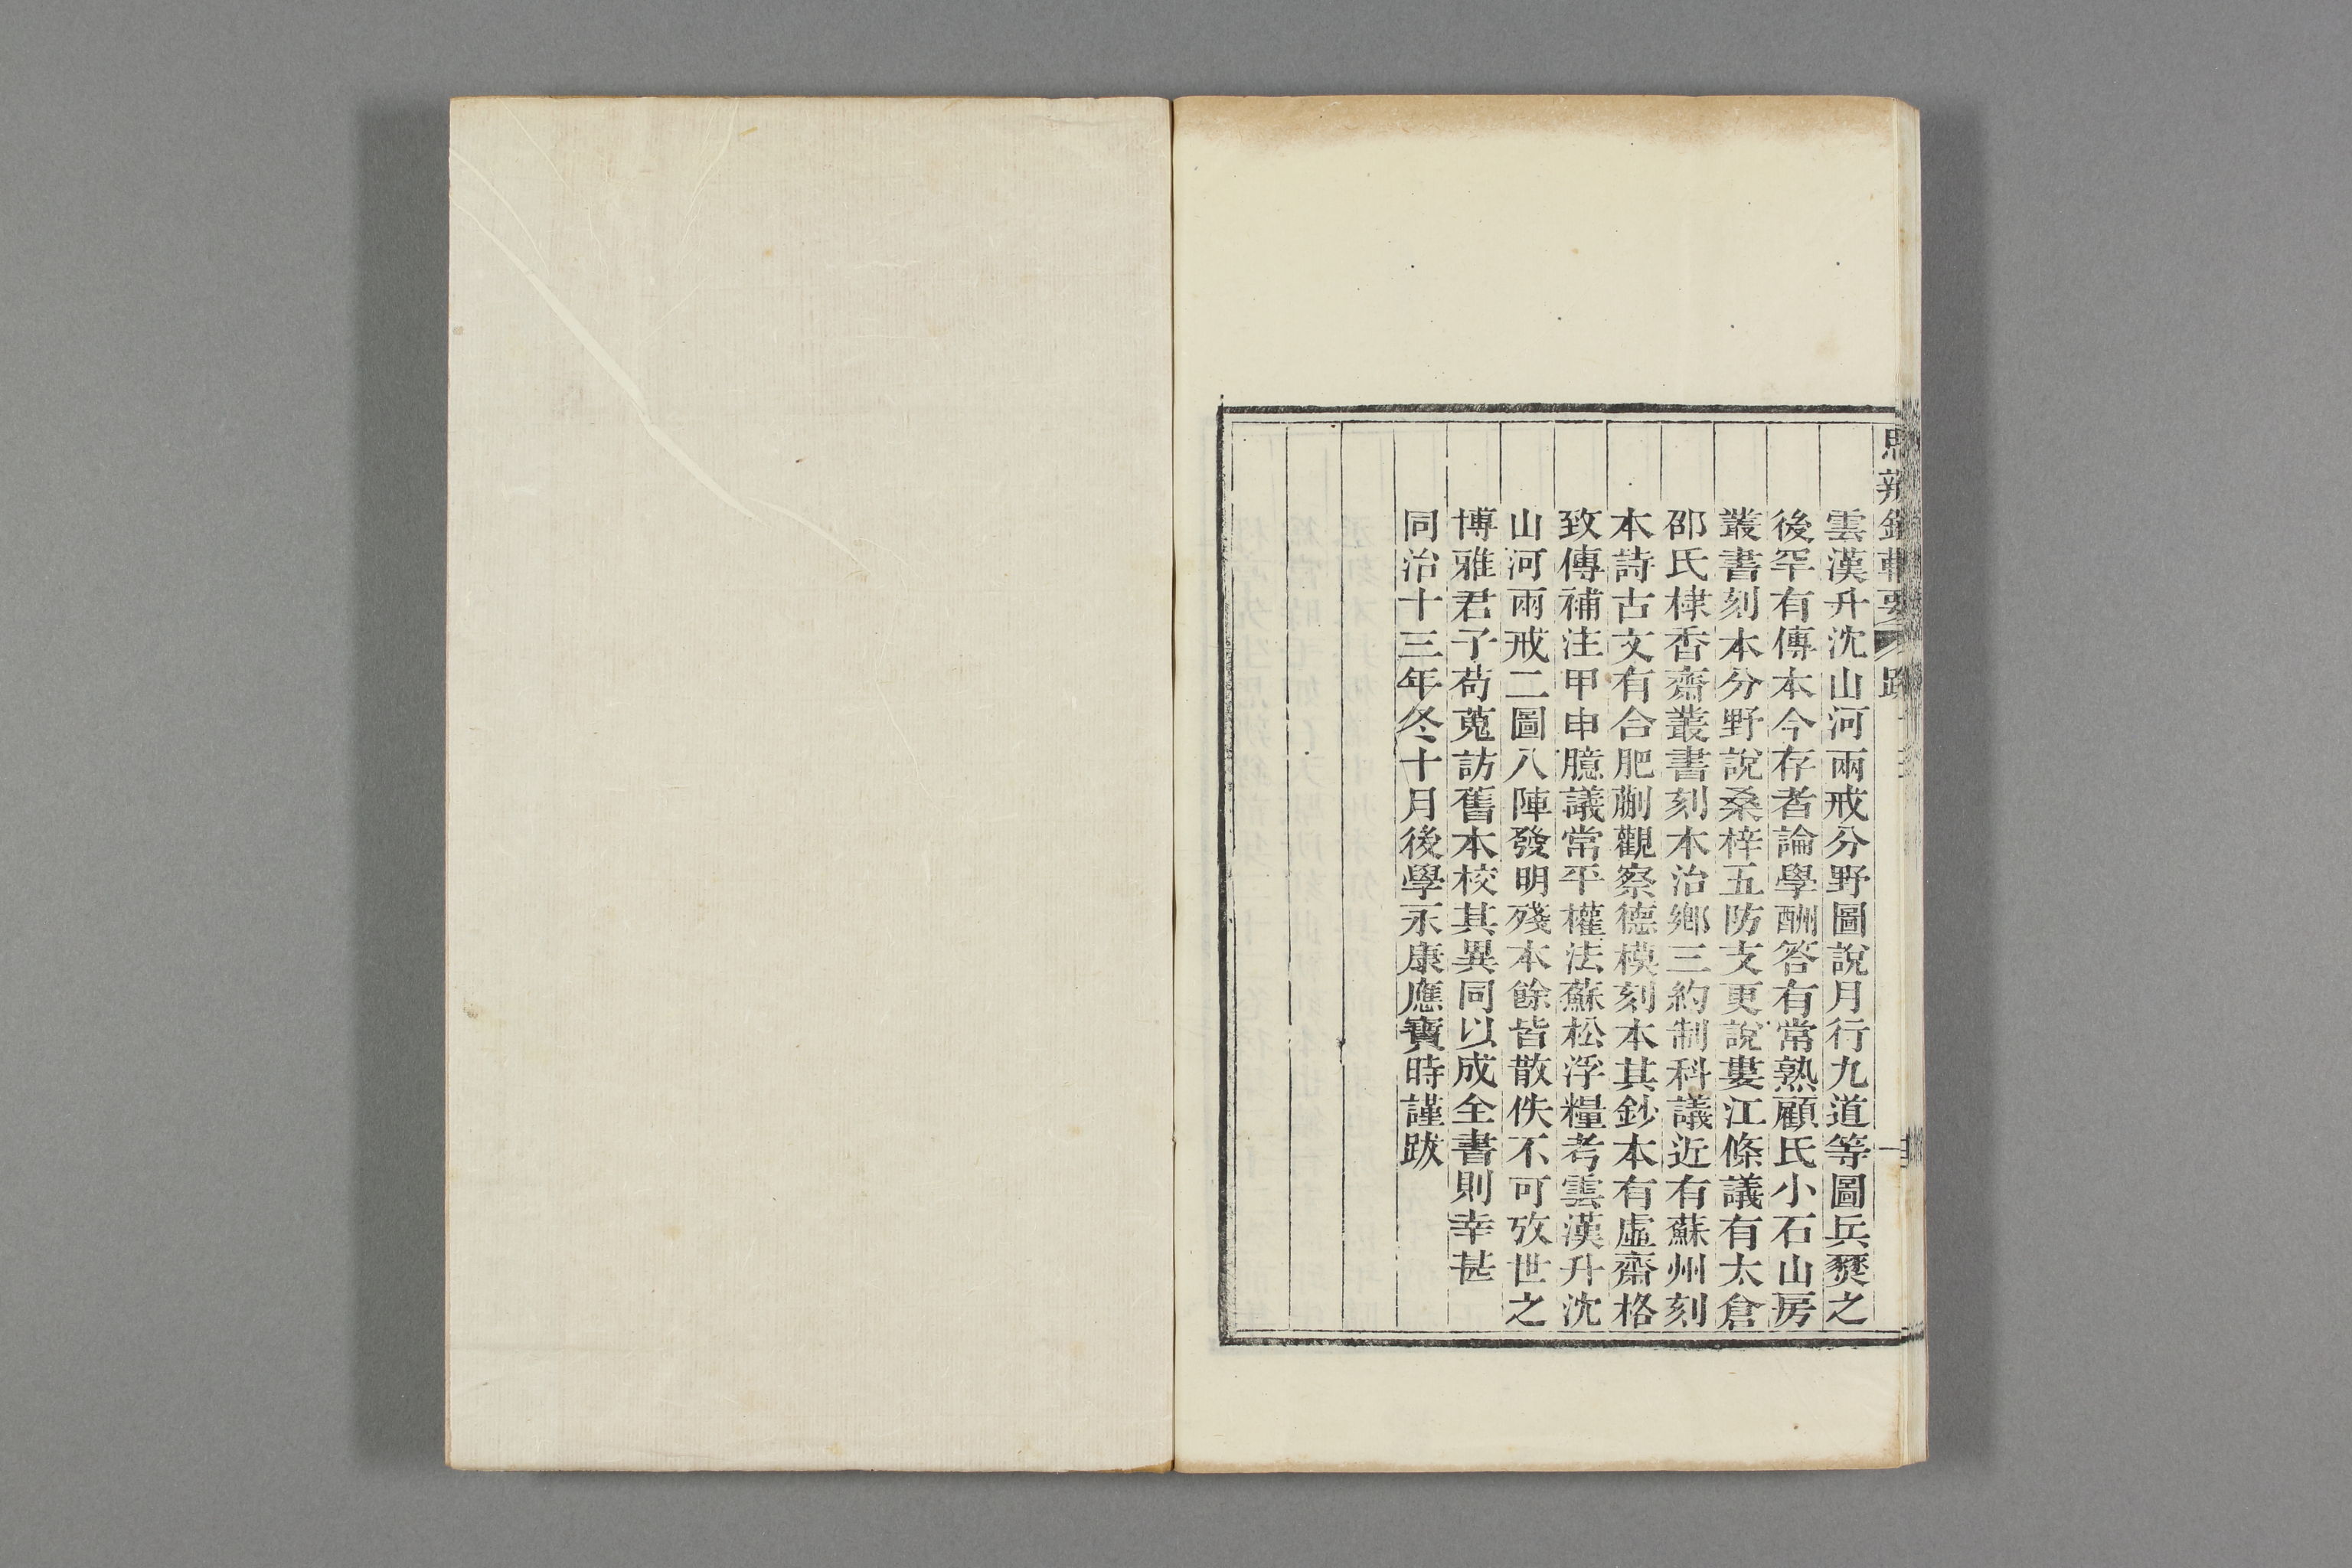 思辨錄輯要 跋
雲漢升沈山河兩戒分野圖說月行九道等圖兵燹之
後罕有傳本今存者論學酬答有常熟顧氏小石山房
叢書刻本分野說桑梓五防支更說婁江條議有太倉
邵氏棣香齋叢書刻本治鄉三約制科議近有蘇州刻
本詩古文有合肥蒯觀察德模刻本其鈔本有虛齋格
致傳補注甲申臆議常平權法蘇松浮糧考雲漢升沈
山河兩戒二圖八陣發明殘本餘皆散佚不可攷世之
博雅君子苟蒐訪舊本校其異同以成全書則幸甚
同治十三年冬十月後學永康應寶時謹跋